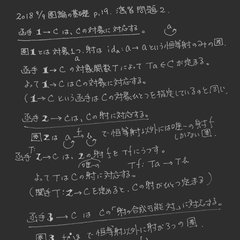 2018 9/9 圏論の基礎 p.19. 演習問題 2.
函手 1→C は、Cの対象に対応する。
圏1とは対象1つ, 射は id_a : a → a という恒等射のみの圏.
函手 1→C の対象関数Tによって Ta∈C が定まる。
よって 1→C は Cの対象に対応する。
(1→C という函手は Cの対象ひとつを指定しているのと同じ.
函手 2→C は、Cの射に対応する。
圏2は a → b で恒等射以外には0個→の射が しかない圏.
函手T: 2→C は、2の射fを Tfにうつす。
Tf : Ta → Tb
よってTは Cの射に対応する。
(関手 T: 2→C を定めると、Cの射がひとつ定まる)
函手 3→C は Cの「射の合成可能対」に対応する。
で恒等射以外に射が3つの圏.